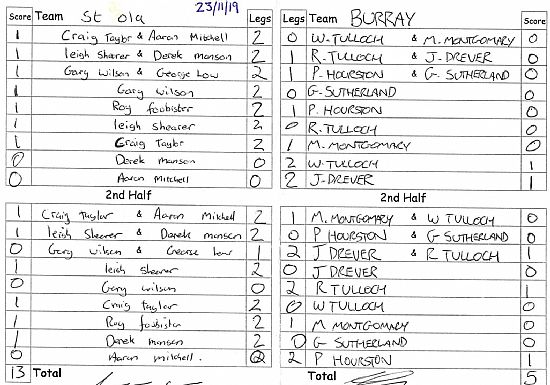 Score Team St Ola 23/11/19 Legs Legs Team BURRAY Score
1 Craig Taylor & Aaron Mitchell 2 0 W. TULLOCH & M. MONTGOMARY 0
1 leigh Shearer & Derek manson 2 1 R. TULLOCH & J. DREVER 0
1 Gary Wilson & George Low 2 1 P. HOURSTON & G. SUTHERLAND 0
1 Gary wilson 2 0 G. SUTHERLAND 0
1 Roy foubister 2 1 P. HOURSTON 0
1 leigh shearer 2 0 R. TULLOCH 0
1 Craig Taylor 2 1 M. MONTGOMARY 0
0 Derek manson 0 2 W. TULLOCH 1
0 Aaron Mitchell 0 2 J. DREVER 1
2nd Half 2nd Half
1 Craig Taylor & Aaron Mitchell 2 1 M. MONTGOMARY & W TULLOCH 0
1 leigh Shearer & Derek manson 2 0 P HOURSTON & G SUTHERLAND 0
0 Gary wilson & George Low 1 2 J DREVER & R TULLOCH 1
1 leigh shearer 2 0 J DREVER 0
0 Gary wilson 0 2 R TULLOCH 1
1 Craig taylor 2 0 W TULLOCH 0
1 Roy foubister 2 1 M MONTGOMARY 0
1 Derek manson 2 0 G SUTHERLAND 0
0 Aaron mitchell. 2 P HOURSTON 1
13 Total Total 5